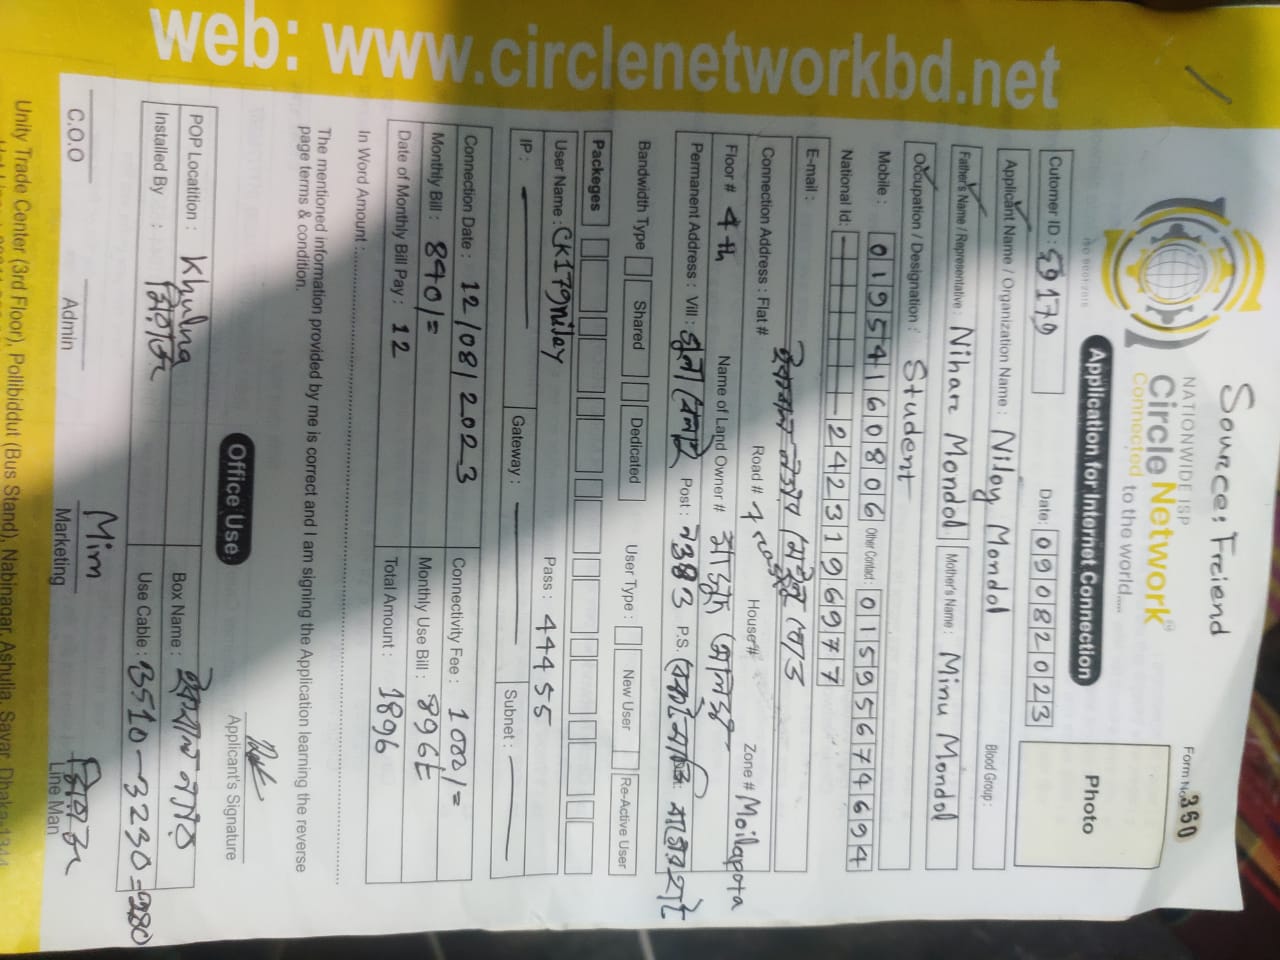 Source: Freiend
NATIONWIDE ISP
Circle Network
Connected to the world....
ISO 9001:2015
Form No. 360
Application for Internet Connection
Photo
Cutomer ID : 59170 Date: 09082023
Applicant Name / Organization Name : Niloy Mondol Blood Group :
Father's Name / Representative : Nihare Mondol Mother's Name : Minu Mondol
Occupation / Designation : Student
Mobile : 01954160806 Other Contact : 01595674694
National Id : 2423196977
E-mail :
Connection Address : Flat # Road # House # Zone # Moilapota
Floor # 4th Name of Land Owner #
Permanent Address : Vill : Post : P.S.
Bandwidth Type Shared Dedicated User Type : New User Re-Active User
Packeges
User Name : CKI79niloy Pass : 4455
IP : Gateway : Subnet :
Connection Date : 12/08/2023 Connectivity Fee : 1000/=
Monthly Bill : 840/= Monthly Use Bill : 896
Date of Monthly Bill Pay : 12 Total Amount : 1896
In Word Amount :
The mentioned information provided by me is correct and I am signing the Application learning the reverse
page terms & condition.
Applicant's Signature
Office Use
POP Locatition : Khulna Box Name :
Installed By : Use Cable : 3510-3230=280
Mim
C.O.O Admin Marketing Line Man
Unity Trade Center (3rd Floor), Pollibiddut (Bus Stand), Nabinagar, Ashulia, Savar, Dhaka-1344
web: www.circlenetworkbd.net